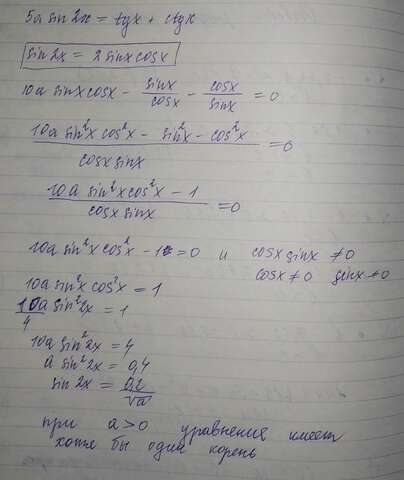 5a sin 2x = tgx + ctgx
sin 2x = 2 sinx cosx
10a sinx cosx - sinx/cosx - cosx/sinx = 0
(10a sin²x cos²x - sin²x - cos²x)/(cosx sinx) = 0
(10a sin²x cos²x - 1)/(cosx sinx) = 0
10a sin²x cos²x - 1 = 0 и cosx sinx ≠ 0
cosx ≠ 0 sinx ≠ 0
10a sin²x cos²x = 1
10a/4 sin²2x = 1
10a sin²2x = 4
a sin²2x = 0,4
sin 2x = 0,2/√a
при a > 0 уравнения имеет
хотя бы один корень